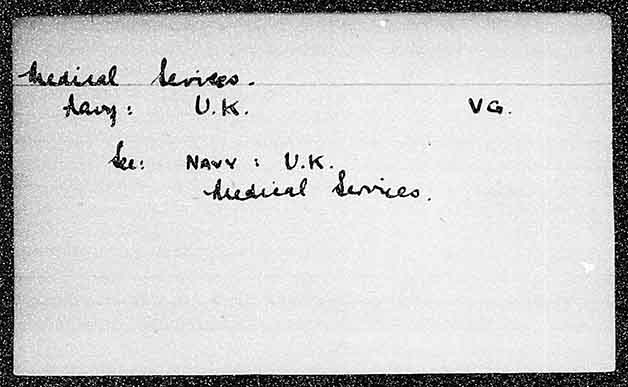 Medical Services.
Navy: U.K. VG.
See: NAVY: U.K.
Medical Services.